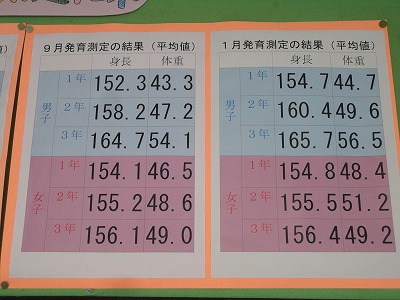 9月発育測定の結果 (平均値)
身長 体重
男子
1年 152.3 43.3
2年 158.2 47.2
3年 164.7 54.1
女子
1年 154.1 46.5
2年 155.2 48.6
3年 156.1 49.0
1月発育測定の結果 (平均値)
身長 体重
男子
1年 154.7 44.7
2年 160.4 49.6
3年 165.7 56.5
女子
1年 154.8 48.4
2年 155.5 51.2
3年 156.4 49.2